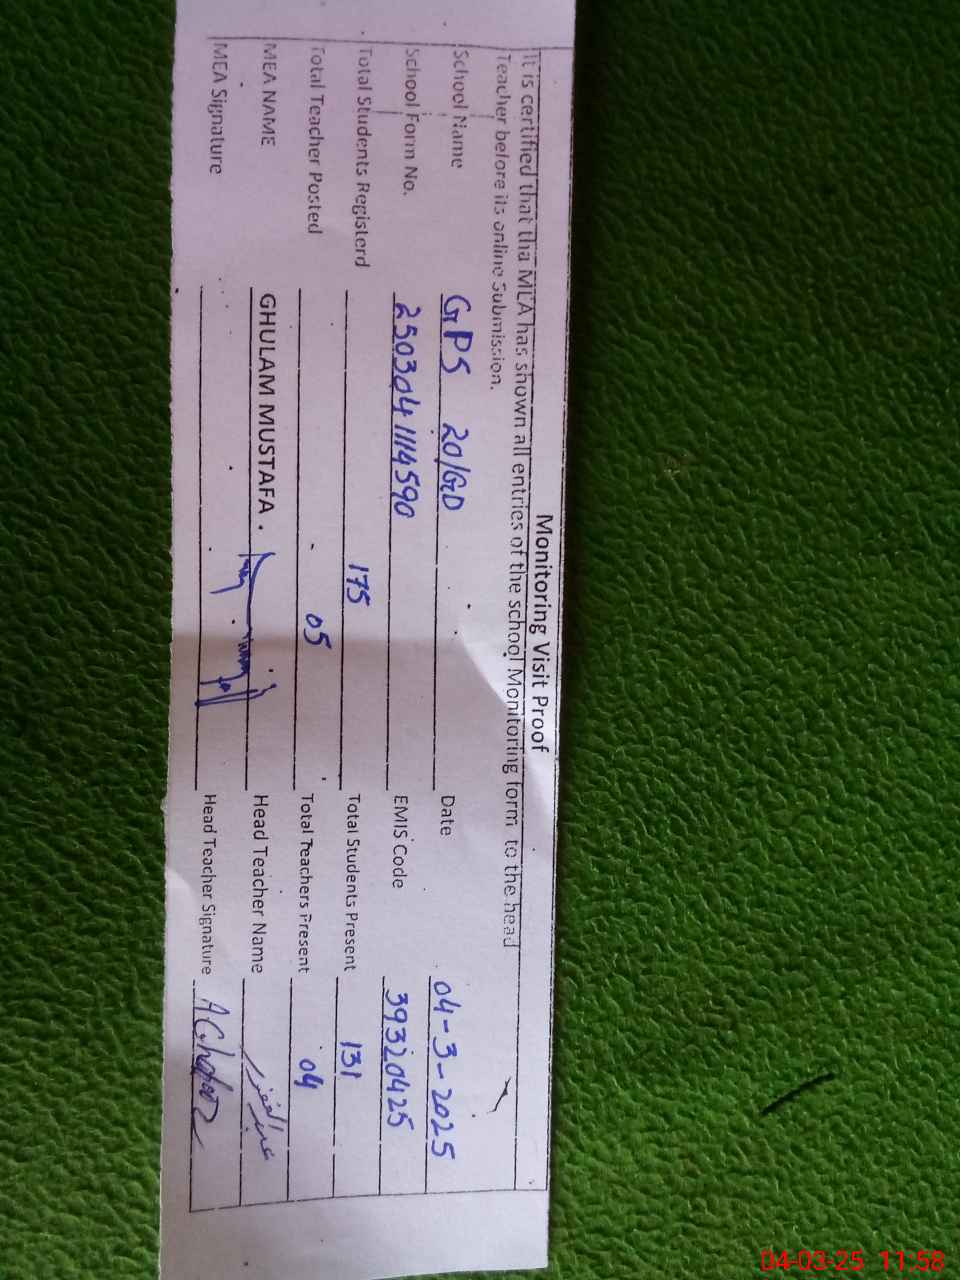 Monitoring Visit Proof
It is certified that tha MEA has shown all entries of the school Monitoring form to the head
Teacher before its online submission.
School Name GPS 20/GD Date 04-3-2025
School Form No. 2503041114590 EMIS Code 39320425
Total Students Registerd 175 Total Students Present 131
Total Teacher Posted 05 Total Teachers Present 04
MEA NAME GHULAM MUSTAFA. Head Teacher Name عبدالغفور
MEA Signature Head Teacher Signature A Ghafoor
04-03-25 11:58